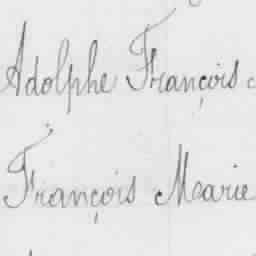 Adolphe François
François Marie